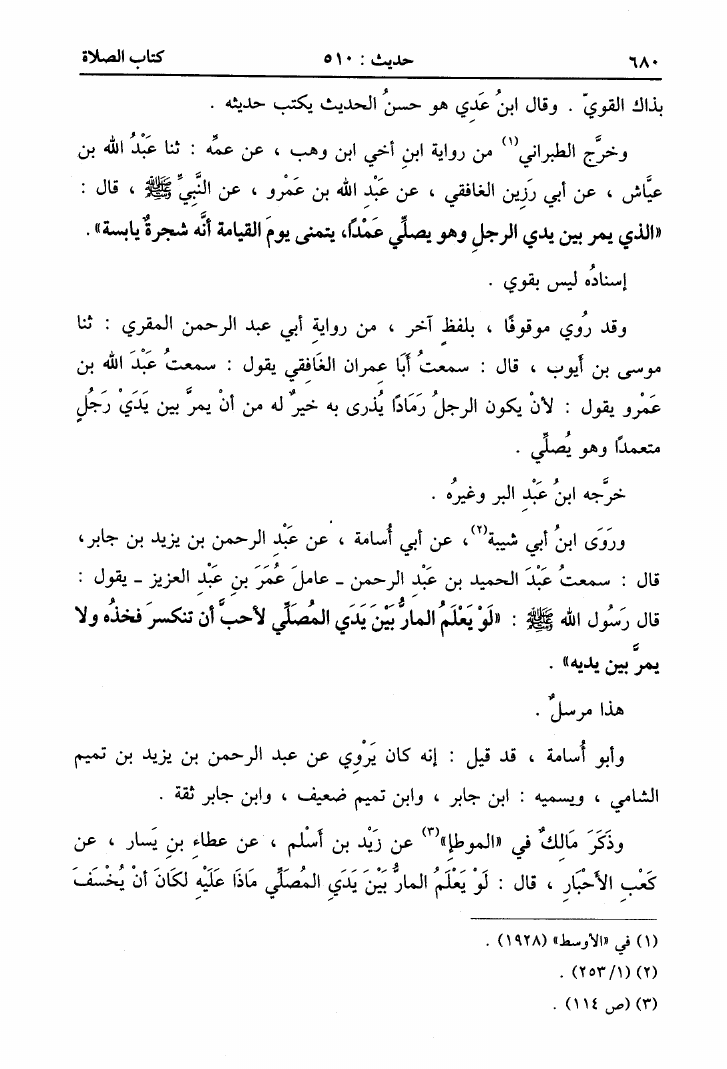 ٦٨٠ حديث : ٥١٠ كتاب الصلاة
بذاك القويّ . وقال ابنُ عَدِي هو حسنُ الحديث يكتب حديثه .
وخرَّج الطبراني(١) من رواية ابنِ أخي ابن وهب ، عن عمِّه : ثنا عَبْدُ الله بن
عيَّاش ، عن أبي رَزِين الغافقي ، عن عَبْدِ الله بن عَمْرو ، عن النَّبيِّ ﷺ ، قال :
«الذي يمر بين يدي الرجلِ وهو يصلِّي عَمْدًا، يتمنى يومَ القيامة أنَّه شجرةٌ يابسة» .
إسنادُه ليس بقوي .
وقد رُوي موقوفًا ، بلفظٍ آخر ، من روايةِ أبي عبد الرحمن المقري : ثنا
موسى بن أيوب ، قال : سمعتُ أبَا عِمران الغَافِقي يقول : سمعتُ عَبْدَ الله بن
عَمْرو يقول : لأنْ يكون الرجلُ رَمَادًا يُذرى به خيرٌ له من أنْ يمرَّ بين يَدَيْ رَجُلٍ
متعمدًا وهو يُصلِّي .
خرَّجه ابنُ عَبْدِ البر وغيرُه .
ورَوَى ابنُ أبي شيبة(٢)، عن أبي أُسامة ، عن عَبْدِ الرحمن بن يزيد بن جابر،
قال : سمعتُ عَبْدَ الحميد بن عَبْدِ الرحمن ـ عاملَ عُمَرَ بنِ عَبْدِ العزيز ـ يقول :
قال رَسُول الله ﷺ : «لَوْ يَعْلَمُ المارُّ بَيْنَ يَدَي المُصَلِّي لأحبَّ أن تنكسرَ فخذُه ولا
يمرَّ بين يديه» .
هذا مرسلٌ .
وأبو أُسامة ، قد قيل : إنه كان يَرْوِي عن عبد الرحمن بن يزيد بن تميم
الشامي ، ويسميه : ابن جابر ، وابن تميم ضعيف ، وابن جابر ثقة .
وذَكَرَ مَالِكٌ في «الموطإ»(٣) عن زَيْد بن أَسْلم ، عن عطاءِ بنِ يَسار ، عن
كَعْبِ الأَحْبَارِ ، قال : لَوْ يَعْلَمُ المارُّ بَيْنَ يَدَي المُصَلِّي مَاذَا عَلَيْهِ لكَانَ أنْ يُخْسَفَ
(١) في «الأوسط» (١٩٢٨) .
(٢) (١/٢٥٣) .
(٣) (ص ١١٤) .